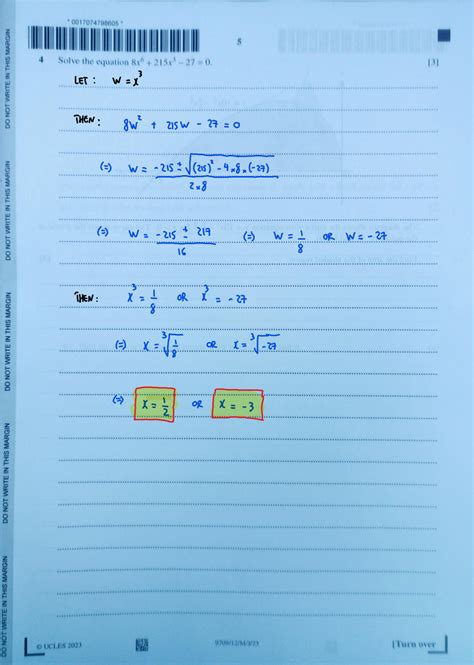 * 0017074798605 *
5
4 Solve the equation 8x⁶ + 215x³ − 27 = 0. [3]
LET : W = x³
THEN: 8W² + 215W − 27 = 0
(=) W = (−215 ± √((215)² − 4×8×(−27))) / (2×8)
(=) W = (−215 ± 217) / 16 (=) W = 1/8 OR W = −27
THEN: x³ = 1/8 OR x³ = −27
(=) x = ³√(1/8) OR x = ³√(−27)
(=) x = 1/2 OR x = −3
© UCLES 2023 9709/12/M/J/23 [Turn over
DO NOT WRITE IN THIS MARGIN
DO NOT WRITE IN THIS MARGIN
DO NOT WRITE IN THIS MARGIN
DO NOT WRITE IN THIS MARGIN
DO NOT WRITE IN THIS MARGIN